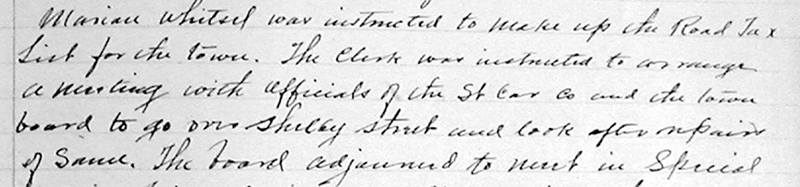 Marian Whitsel was instructed to make up the Road Tax
List for the town. The Clerk was instructed to arrange
a meeting with Officials of the St Car Co and the town
board to go over Shelby Street and look after repairs
of Same. The board adjourned to meet in Special